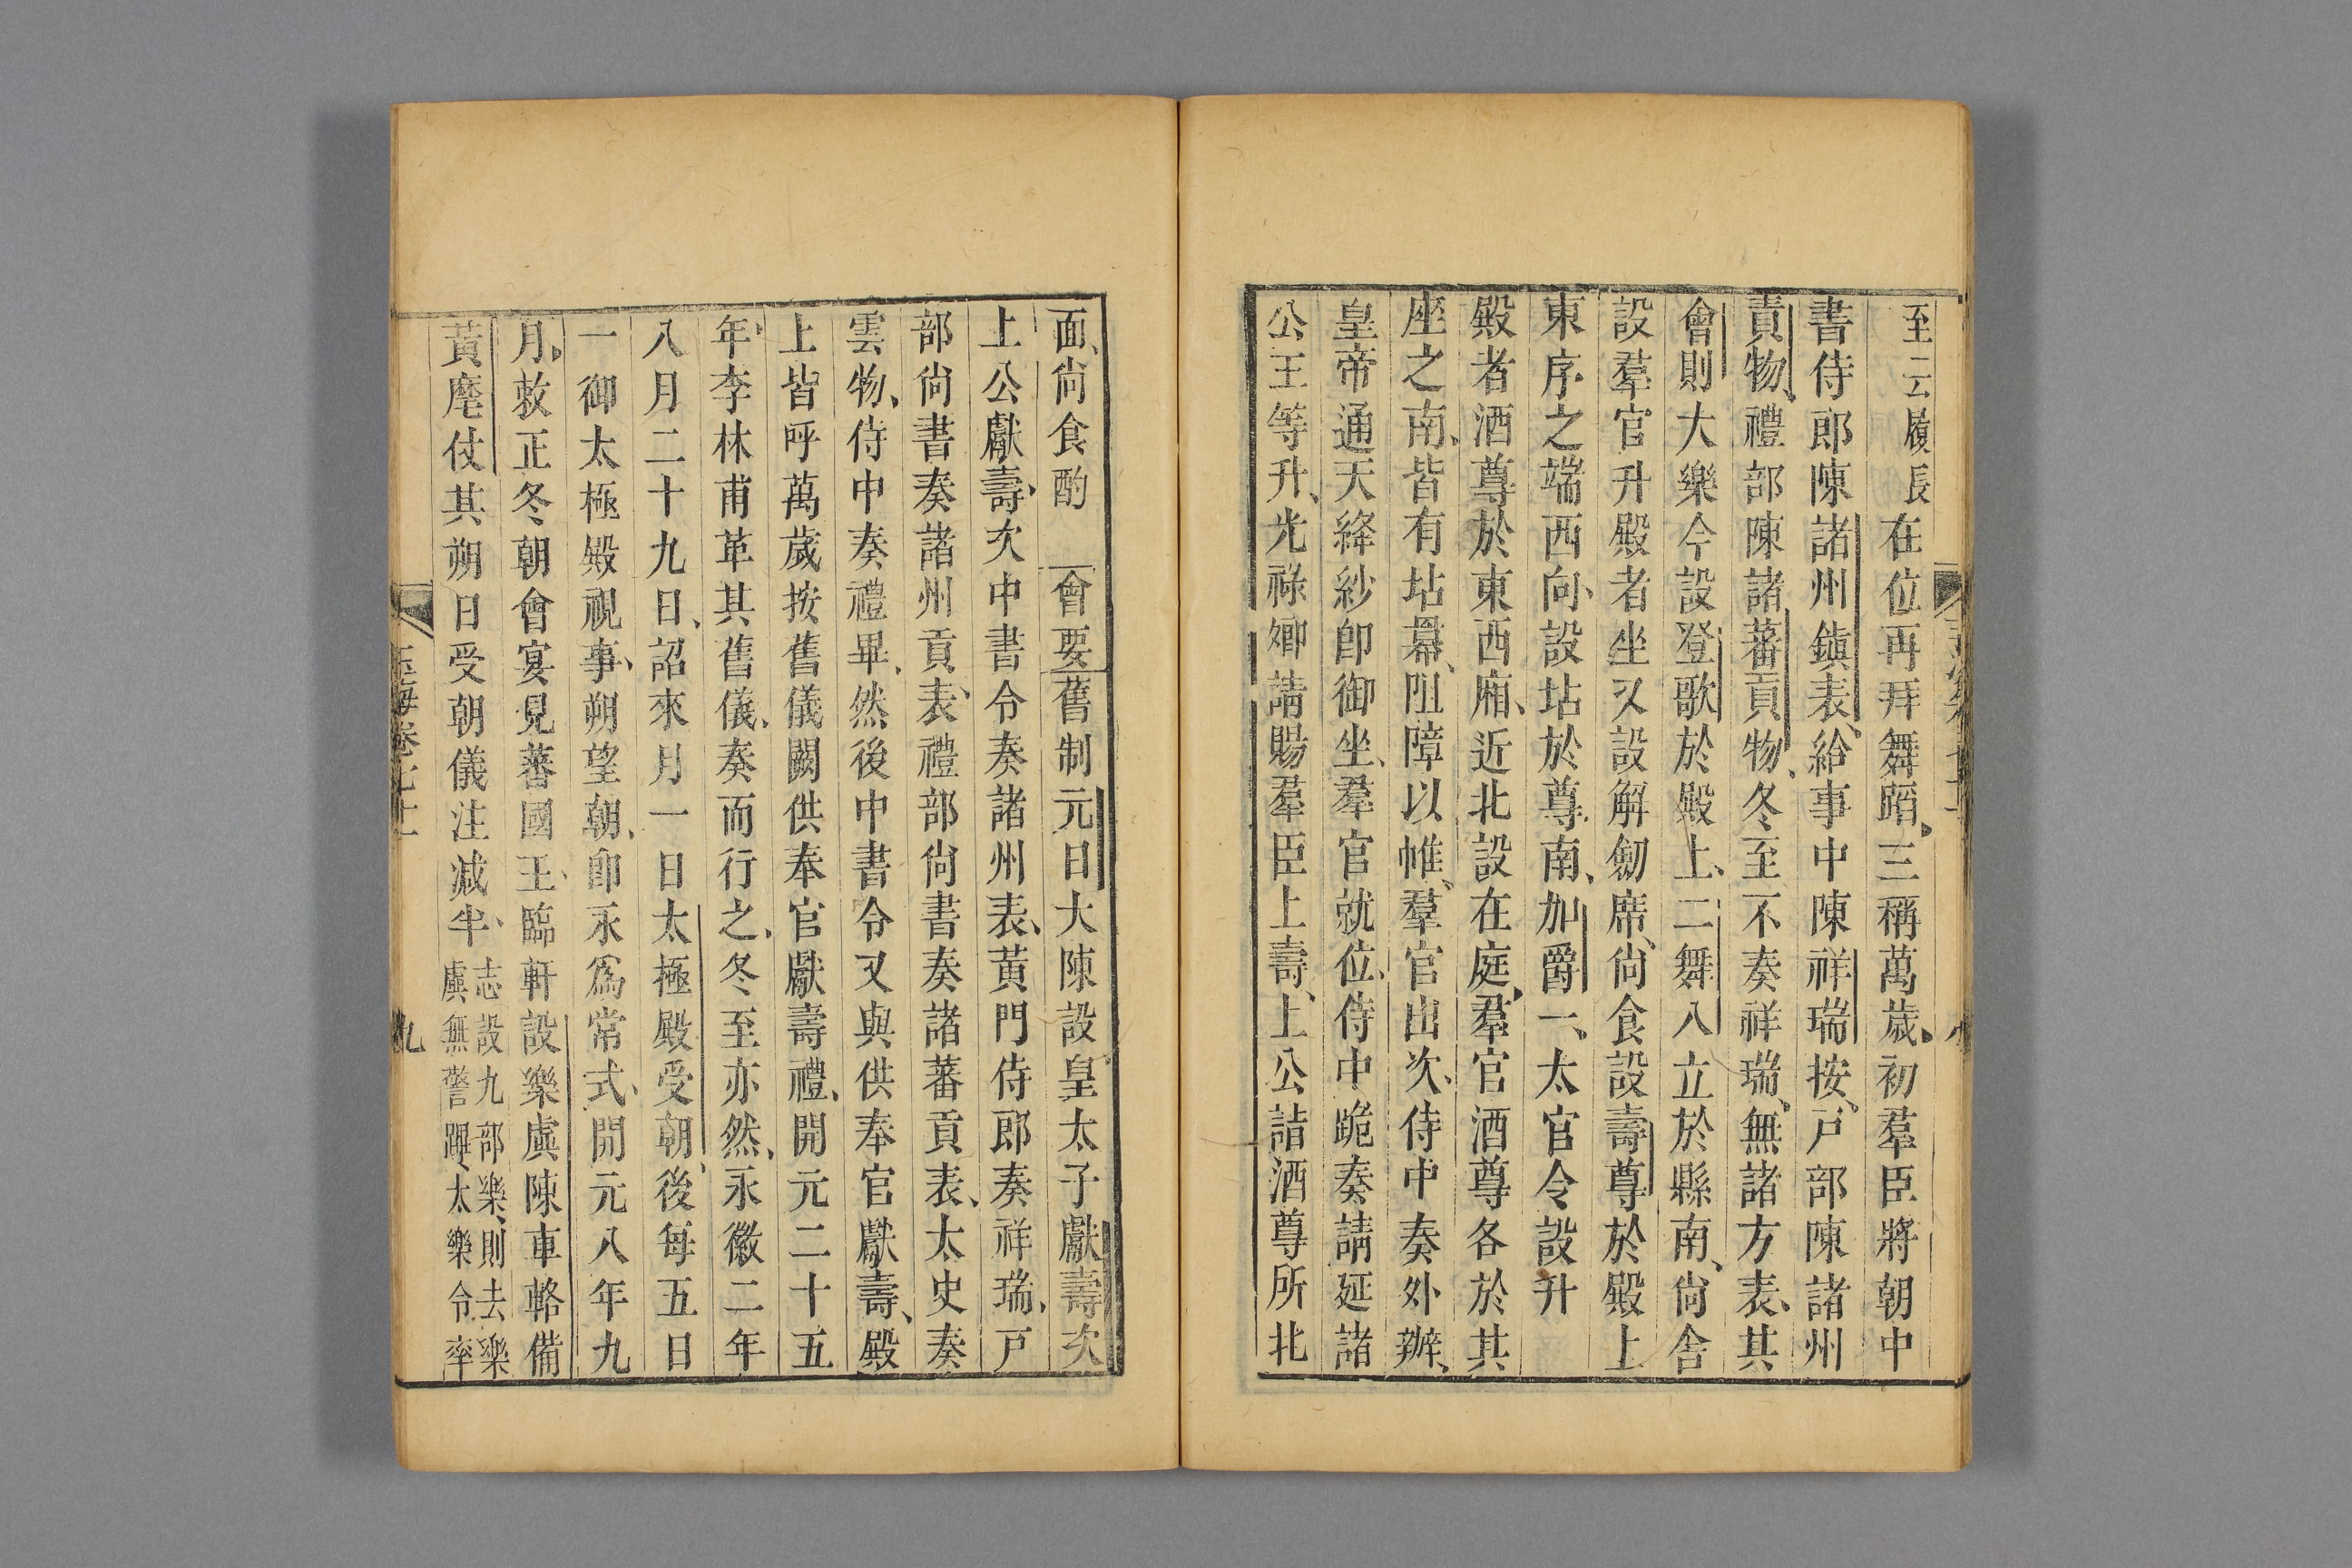 至云履長在位再拜舞蹈三稱萬歲初羣臣將朝中
書侍郎陳諸州鎮表給事中陳祥瑞按戶部陳諸州
責物禮部陳諸蕃貢物冬至不奏祥瑞無諸方表其
會則大樂令設登歌於殿上二舞入立於縣南尙舍
設羣官升殿者坐又設解劒席尙食設壽尊於殿上
東序之端西向設坫於尊南加爵一太官令設升
殿者酒尊於東西廂近北設在庭羣官酒尊各於其
座之南皆有坫羃阻障以帷羣官出次侍中奏外辦
皇帝通天絳紗卽御坐羣官就位侍中跪奏請延諸
公王等升光祿卿請賜羣臣上壽上公詣酒尊所北
面尙食酌 會要舊制元日大陳設皇太子獻壽次
上公獻壽次中書令奏諸州表黃門侍郎奏祥瑞戶
部尙書奏諸州貢表禮部尙書奏諸蕃貢表太史奏
雲物侍中奏禮畢然後中書令又與供奉官獻壽殿
上皆呼萬歲按舊儀闕供奉官獻壽禮開元二十五
年李林甫革其舊儀奏而行之冬至亦然永徽二年
八月二十九日詔來月一日太極殿受朝後每五日
一御太極殿視事朔望朝卽永爲常式開元八年九
月敕正冬朝會宴見蕃國王臨軒設樂虡陳車輅備
黃麾仗其朔日受朝儀注減半志設九部樂則去樂
虡無警蹕太樂令率
玉海卷七十一
九